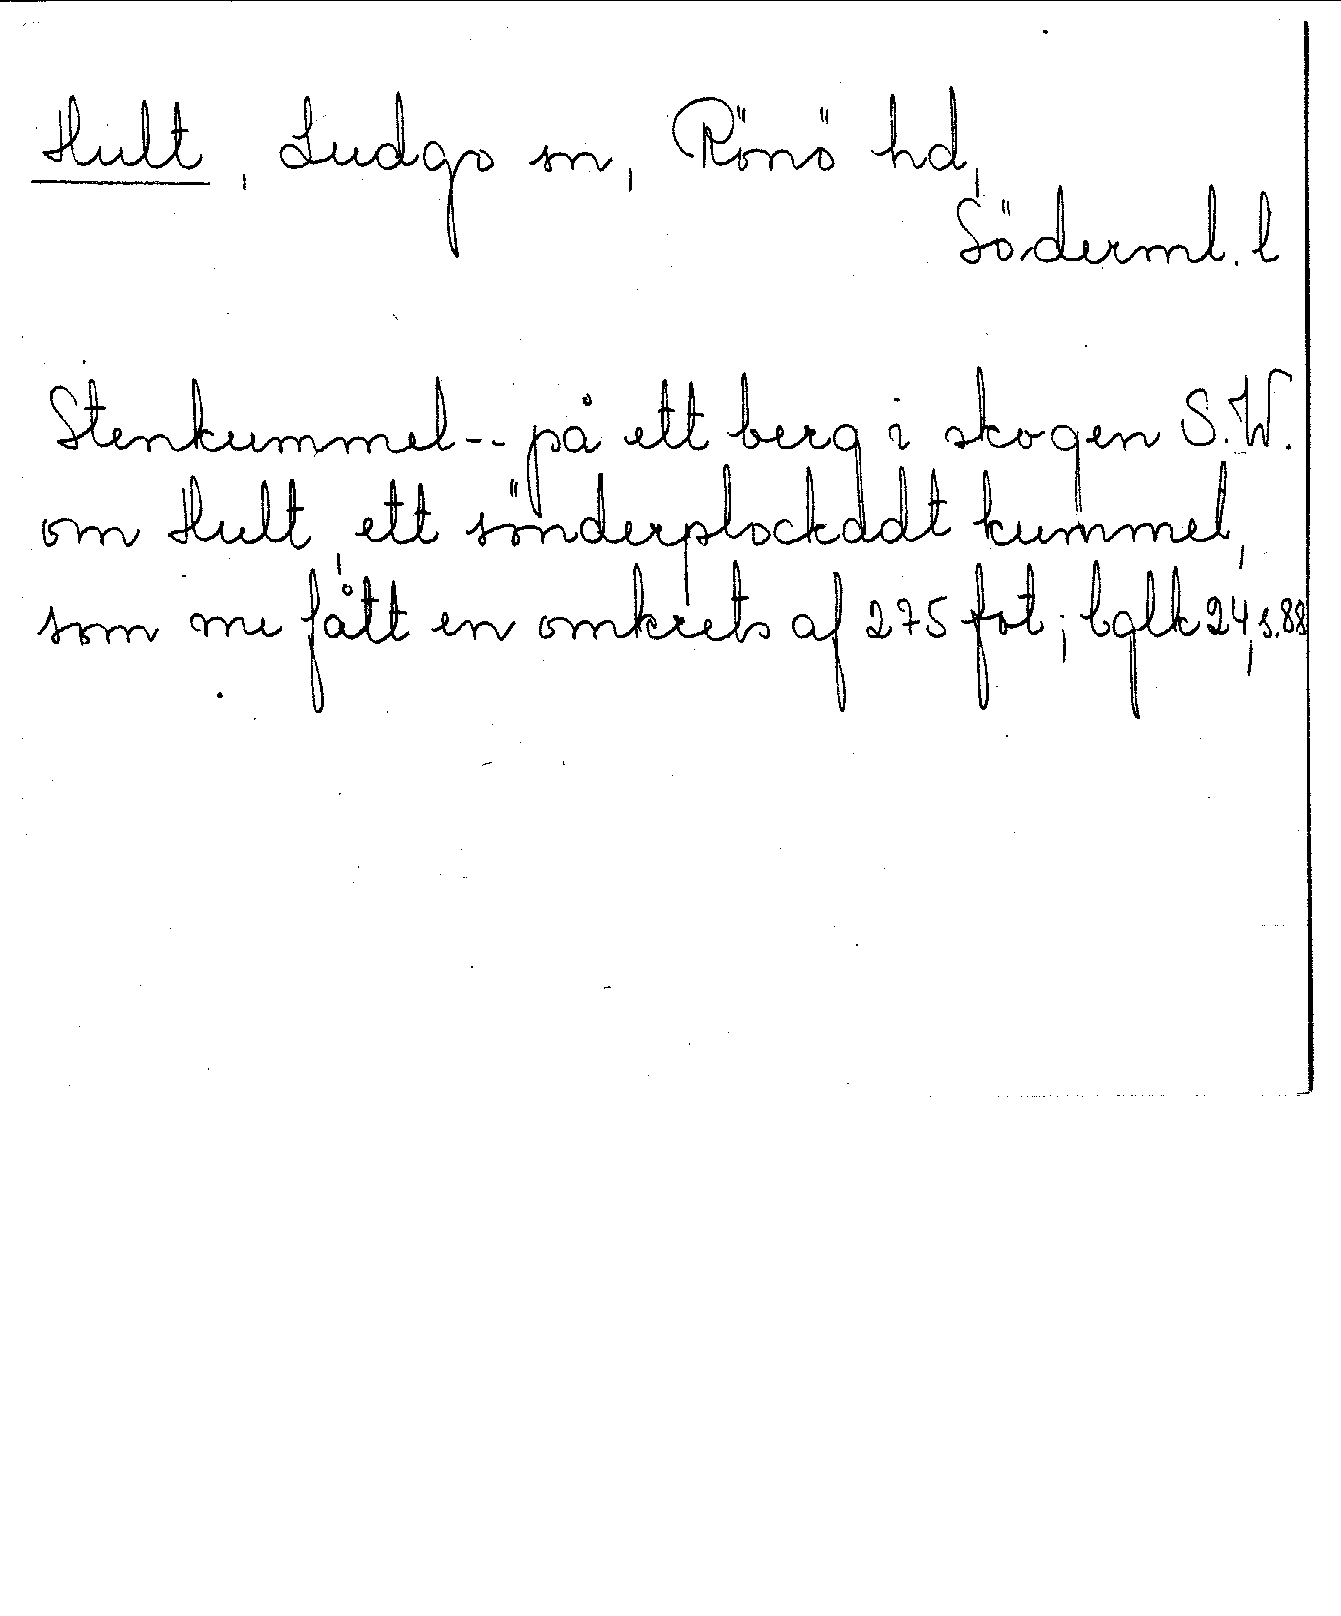 Hult, Ludgo sn, Rönö hd,
Söderml. l
Stenkummel-- på ett berg i skogen S.W.
om Hult, ett sönderplockadt kummel,
som nu fått en omkrets af 275 fot; bglk 24, s.88